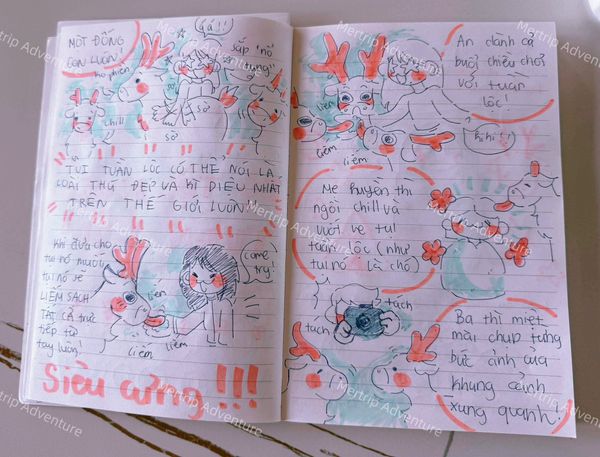 MỘT ĐỐNG
CON LUÔN!
hổ phiền
chill
Gá!!
sắp "nổ
tung"
sờ
sờ
sờ
TỤI TUẦN LỘC CÓ THỂ NÓI LÀ
LOÀI THÚ ĐẸP VÀ KÌ DIỆU NHẤT
TRÊN THẾ GIỚI LUÔN!
Khi đưa cho
tụi nó muối
tụi nó sẽ
LIẾM SẠCH
TẤT CẢ TRỰC
TIẾP TỪ
tay luôn!
liếm
liếm
liếm
Siêu cưng!!!
An dành cả
buổi chiều chơi
với tuần
lộc!
liếm
liếm
liếm
hihi!!
Mẹ Huyền thì
ngồi chill và
vuốt ve tụi
tuần lộc (như
tụi nó là chó)
tách
tách
Ba thì miệt
mài chụp từng
bức ảnh của
khung cảnh
xung quanh!
Mertrip Adventure
Mertrip Adventure
Mertrip Adventure
Mertrip Adventure
Mertrip Adventure
Mertrip Adventure
Mertrip Adventure